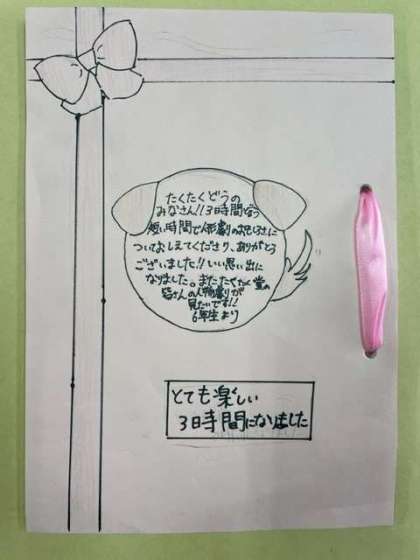 たくたくどうの
みなさん!!3日時間という
短い時間で人形劇のお もしろさに
ついておしえてくださり、ありがとう
ございました!!いい思い出に
なりました。またたくたく堂の
皆さんの人形劇が
見たいです!!
6年生より
とても楽しい
3日時間になりました